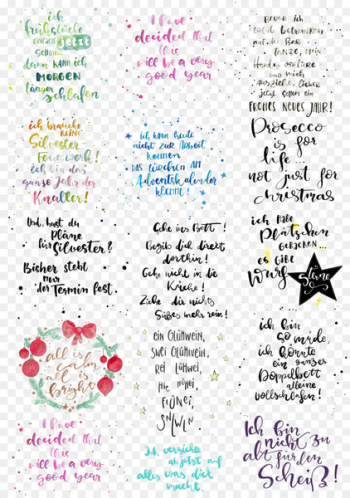 ich
frühstücke
einfach jetzt
schon,
dann kann ich
MORGEN
länger
schlafen
I have
decided that
this
will be a very
good year
Bevor ich
total betrunken
auf der Bar
tanze, mein
jetzt schon ein
FROHES NEUES JAHR!
ich brauche
KEINE
Silvester
Feuerwerk!
ich bin das
ganze Jahr der
Knaller!
ich kann heute
nicht zur Arbeit
kommen
das Türchen am
Adventskalender
klemmt!
Prosecco
is for
life
not just for
christmas
Und, hast du
Pläne
für Silvester?
Bisher steht
nur
der Termin fest.
Gehe ins Bett!
Begib dich direkt
dorthin!
Gehe nicht in die
Küche!
Ziehe dir nichts
Süßes mehr rein!
ich habe
Plätzchen
gebacken...
es gibt
Wurf
Sterne
all is
calm
all is
bright
ein Glühwein,
zwei Glühwein,
drei
ich bin
so müde,
ich könnte
ein ganzes
Doppelbett
alleine
vollschlafen!
I have
decided that
this
will be a very
good year
Ich verzichte
ab jetzt auf
alles was dick
macht
Ich bin
nicht zu
alt für den
Scheiß!